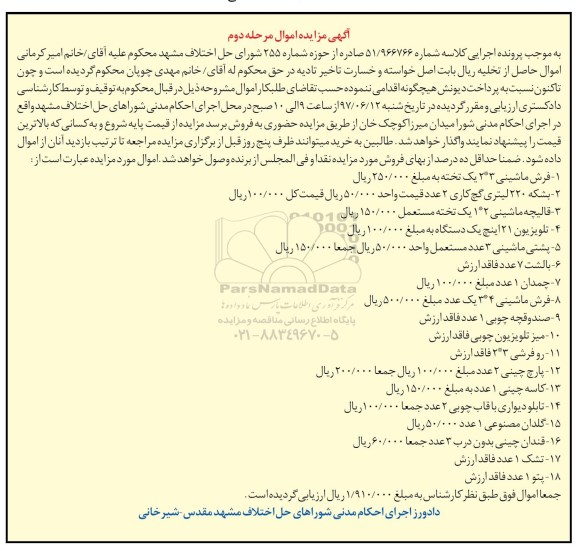 آگهی مزایده اموال مرحله دوم
به موجب پرونده اجرایی کلاسه شماره ۵۱/۹۶۶۷۶۶ صادره از حوزه شماره ۲۵۵ شورای حل اختلاف مشهد محکوم علیه آقای/خانم امیر کرمانی
اموال حاصل از تخلیه ریال بابت اصل خواسته و خسارت تاخیر تادیه در حق محکوم له آقای/ خانم مهدی چوپان محکوم گردیده است و چون
تاکنون نسبت به پرداخت دیونش هیچگونه اقدامی ننموده حسب تقاضای طلبکار اموال مشروحه ذیل در قبال محکوم به توقیف و توسط کارشناسی
دادگستری ارزیابی و مقرر گردیده در تاریخ شنبه ۹۷/۰۶/۱۲ از ساعت ۹ الی ۱۰ صبح در محل اجرای احکام مدنی شوراهای حل اختلاف مشهد واقع
در اجرای احکام مدنی شورا میدان میرزا کوچک خان از طریق مزایده حضوری به فروش برسد مزایده از قیمت پایه شروع و به کسانی که بالاترین
قیمت را پیشنهاد نمایند واگذار خواهد شد . طالبین به خرید میتوانند ظرف پنج روز قبل از برگزاری مزایده مراجعه تا ترتیب بازدید آنان از اموال
داده شود . ضمنا حداقل ده درصد از بهای فروش مورد مزایده نقدا و فی المجلس از برنده وصول خواهد شد .اموال مورد مزایده عبارت است از :
۱-فرش ماشینی ۳*۲ یک تخته به مبلغ ۲۵۰/۰۰۰ ریال
۲-بشکه ۲۲۰ لیتری گچ کاری ۲ عدد قیمت واحد ۵۰/۰۰۰ ریال قیمت کل ۱۰۰/۰۰۰ ریال
۳-قالیچه ماشینی ۲*۱ یک تخته مستعمل ۱۵۰/۰۰۰ ریال
۴-تلویزیون ۲۱ اینچ یک دستگاه به مبلغ ۱۰۰/۰۰۰ ریال
۵-پشتی ماشینی ۳ عدد مستعمل واحد ۵۰/۰۰۰ ریال جمعا ۱۵۰/۰۰۰ ریال
۶-بالشت ۷ عدد فاقد ارزش
۷-چمدان ۱ عدد مبلغ ۱۰۰/۰۰۰ ریال
۸-فرش ماشینی ۴*۳ یک عدد مبلغ ۵۰۰/۰۰۰ ریال
۹-صندوقچه چوبی ۱ عدد فاقد ارزش
۱۰-میز تلویزیون چوبی فاقد ارزش
۱۱-رو فرشی ۳*۲ فاقد ارزش
۱۲-پارچ چینی ۲ عدد مبلغ ۱۰۰/۰۰۰ ریال جمعا ۲۰۰/۰۰۰ ریال
۱۳-کاسه چینی ۱ عدد به مبلغ ۱۵۰/۰۰۰ ریال
۱۴-تابلو دیواری با قاب چوبی ۲ عدد جمعا ۱۰۰/۰۰۰ ریال
۱۵-گلدان مصنوعی ۱ عدد ۵۰/۰۰۰ ریال
۱۶-قندان چینی بدون درب ۳ عدد جمعا ۶۰/۰۰۰ ریال
۱۷-تشک ۱ عدد فاقد ارزش
۱۸-پتو ۱ عدد فاقد ارزش
جمعا اموال فوق طبق نظر کارشناس به مبلغ ۱/۹۱۰/۰۰۰ ریال ارزیابی گردیده است .
دادورز اجرای احکام مدنی شوراهای حل اختلاف مشهد مقدس-شیرخانی
ParsNamadData
مرکز فرآوری اطلاعات پارس نماد داده ها
پایگاه اطلاع رسانی مناقصه و مزایده
۰۲۱-۸۸۳۴۹۶۷۰-۵